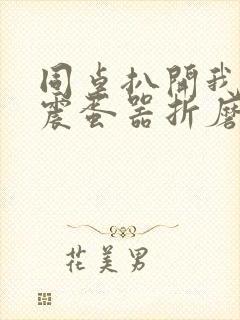 同桌扒開我
震蛋器折磨
花美男